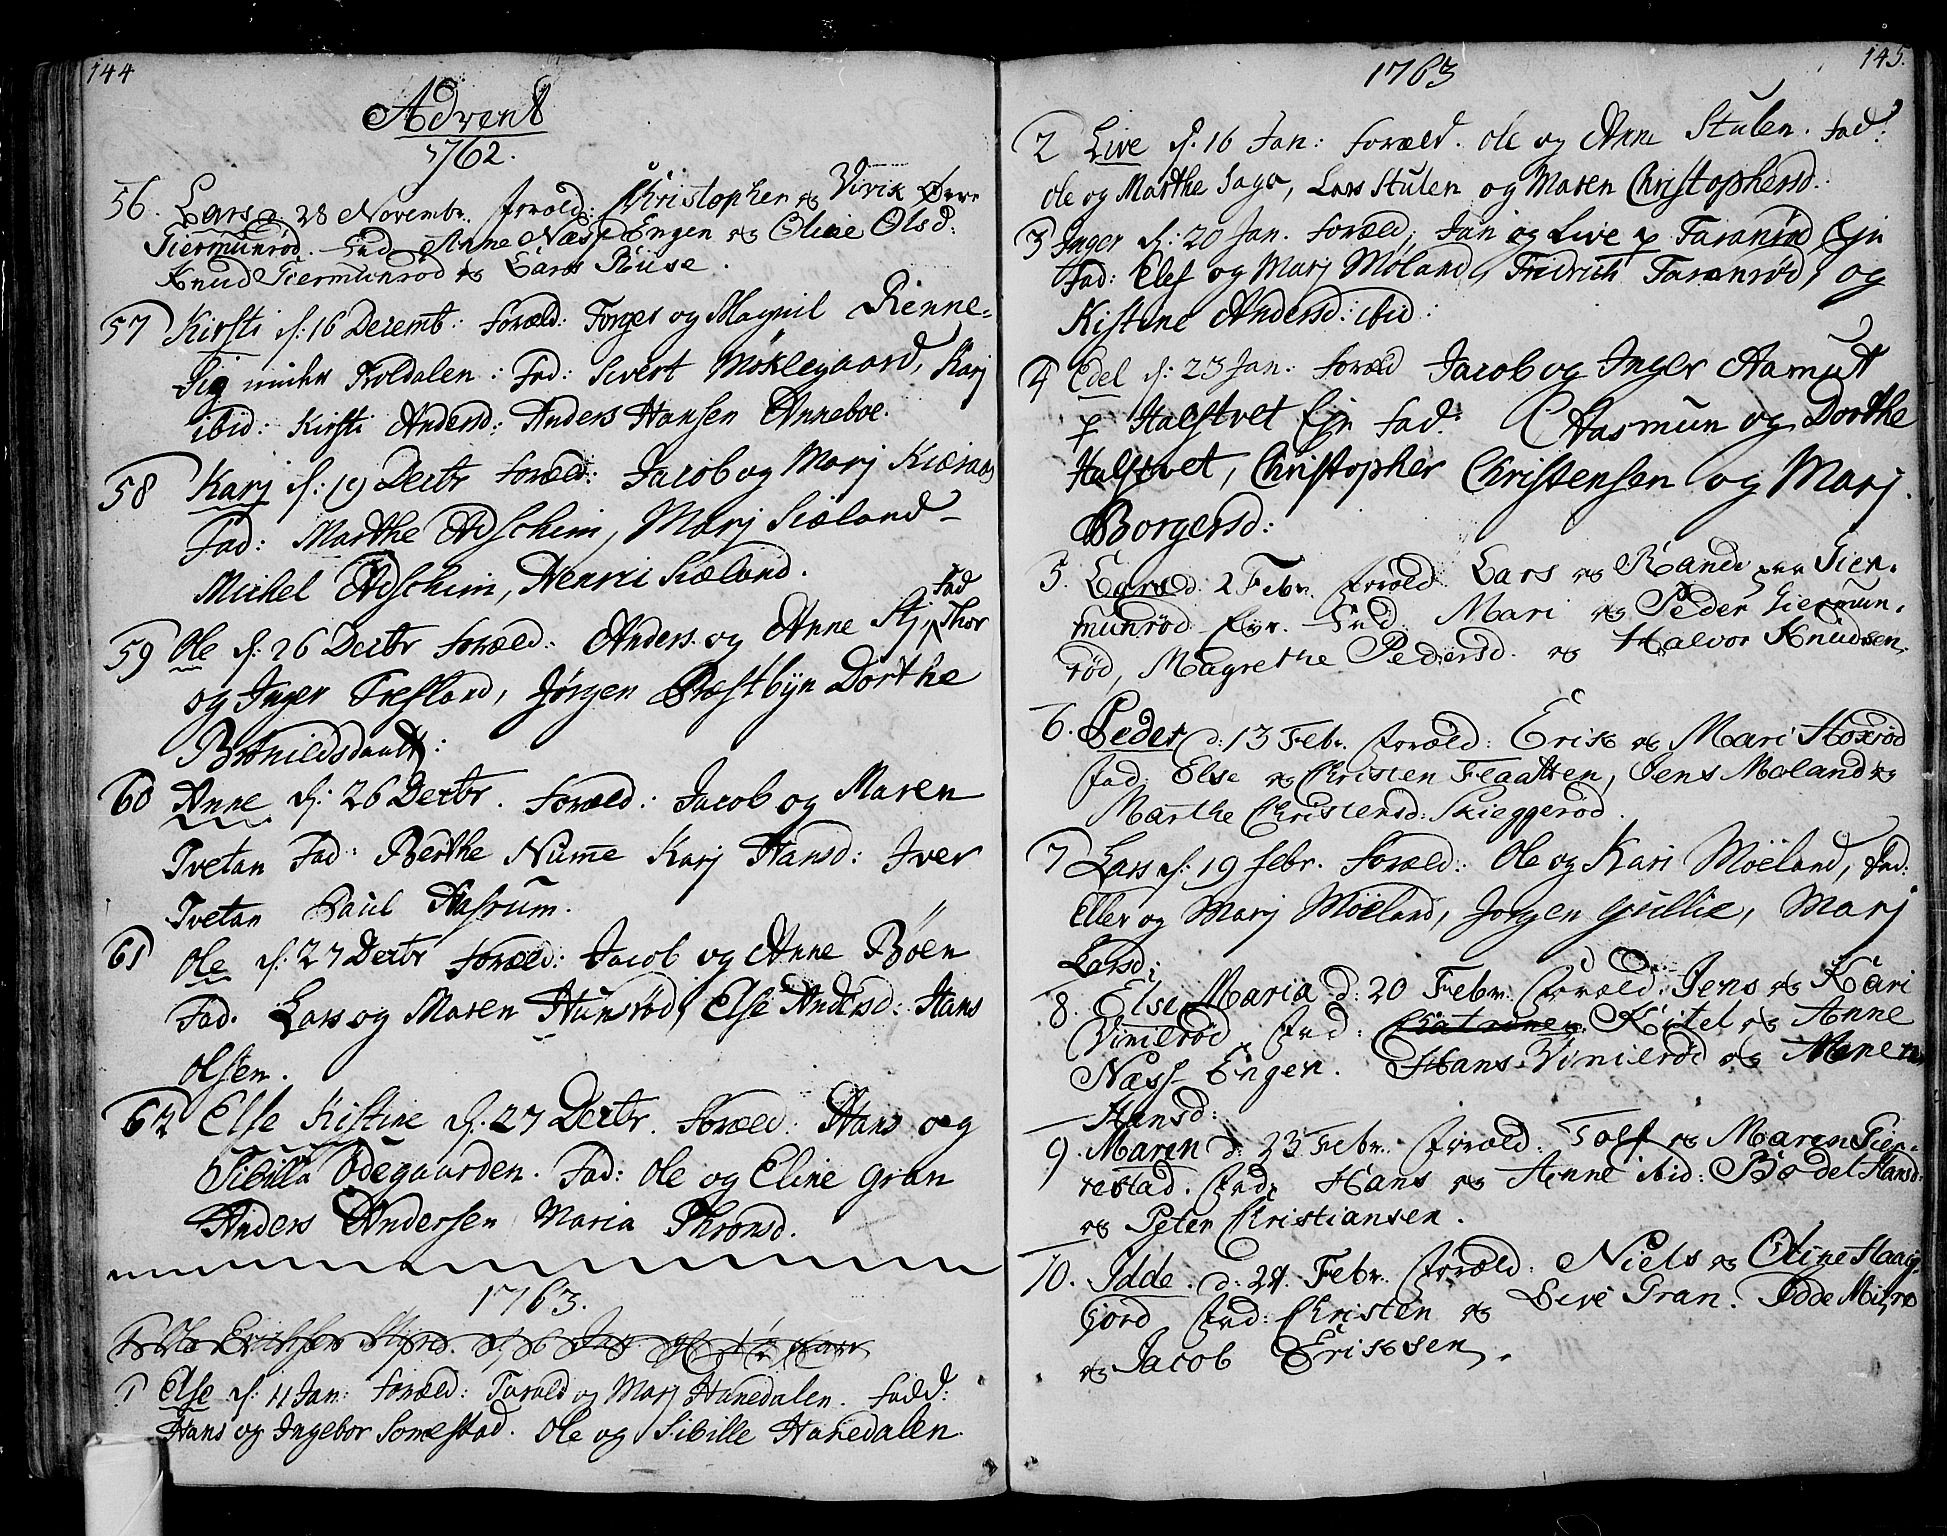 144
Advent
1762.
56. Lars d: 28 Novembr. foræld: Christopher og Vivik Øvre
Tiermunrød. Fad. Anne Næss Engen og Eline Olsd:
Knud Tiermunrød og Lars Ruse.
57 Kirsti d: 16 Decemb: foræld: Torger og Magnil Rinne=
Tig under Foldalen: Fad: Sivert Møklegaard, Karj
ibid: Kirsti Andersd: Anders Hansen Anneboe.
58 Karj d: 19 Decbr foræld: Jacob og Marj Kiæraas
Fad: Marthe Adscheim, Marj Siæland
Michel Adscheim, Henric Siæland.
59 Ole d: 26 Decbr foræld: Anders og Anne Stj, Fad Thor
og Inger Fresland, Jørgen Præstbyn Dorthe
60 Anne d: 26 Decbr. foræld: Jacob og Maren
Tvetan Fad: Berthe Nume Karj Hansd: Iver
Tvetan Paul Aasrum.
61 Ole d: 27 Decbr foræld: Jacob og Anne Bøen
Fad. Lars og Maren Hunsrød, Else Andersd: Hans
olsen.
62 Else Kistine d: 27 Decbr. foræld: Hans og
Sibilla Ødegaarden. Fad: Ole og Eline Gran
Anders Andersen Maria Thronsd.
1763.
1 Else d: 4 Jan: foræld: Tarald og Marj Hanedalen. Fadd:
Hans og Ingebor Somestad. Ole og Sibille Hanedalen.
145.
1763
2 Live d. 16 Jan: foræld. Ole og Anne Stulen. Fad:
Ole og Marthe Saga, Lars Stulen og Maren Christophersd.
3 Inger d: 20 Jan. foræld; Jan og Live p Taranrød Ejn
Fad: Elef og Marj Moland, Fridrich Taranrød, og
Kistine Andersd: ibid:
4 Edel d: 23 Jan. foræld Jacob og Inger Aamutt
p Halstvet Ejn Fad: Aasmun og Dorthe
Halstvet, Christopher Christensen og Marj
Borgersd:
5. Lars d. 2 Febr. foræld Lars og Randi paa Tier-
munrød Eyn. Fad. Mari og Peder Tiermun-
rød, Magrethe Pedersd. og Halvor Knudsen
6. Peder d: 13 Febr. foræld: Erik og Mari Hoxrød
fad: Else og Christen Flaatten, Jens Moland og
Marthe Christensd: Skieggerød.
7 Lars d: 19 febr. foræld: Ole og Kari Moeland, Fad:
Eller og Marj Moeland, Jorgen Gullie, Marj
Larsd:
8. Else Maria d: 20 Febr. foræld: Jens og Kari
Vinierød, Fad: Kitel og Anne
Næss-Engen. Hans Vinierød og Maren
Hansd:
9. Maren d: 23 Febr. foræld: Tolf og Maren Tier-
restad. Fad: Hans og Anne ibid: Bodel Hansd:
og Peter Christiansen.
10. Idde. d: 24. Febr. foræld: Niels og Eline Haag-
Jord Fad: Christen og Live Gran. Idde
og Jacob Erissen.